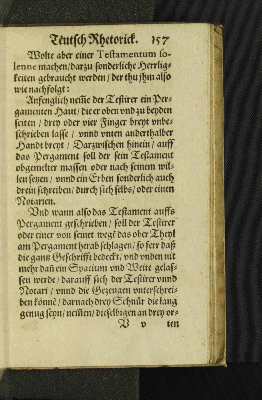 Teutsch Rhetorick. 157
Wolte aber einer Testamentum so-
lenne machen / darzu sonderliche Herrlig-
keiten gebraucht werden / der thu jhm also
wie nachfolgt:
Anfenglich neme der Testirer ein Per-
gamenten Haut / die er oben vnd zu beyden
seiten / drey oder vier Finger breyt vnbe-
schrieben lasse / vnnd vnten anderthalber
Handt breyt / Darzwischen hinein / auff
das Pergament soll der sein Testament
obgemelter massen oder nach seinem wil-
len setzen / vnnd ein Erben sonderlich auch
drein schreiben / durch sich selbs / oder einen
Notarien.
Vnd wann also das Testament auffs
Pergament geschrieben / soll der Testirer
oder einer von seinet wegē das ober Theyl
am Pergament herab schlagen / so fern daß
die gantz Geschrifft bedeckt / vnd vnden nit
mehr dañ ein Spacium vnd Weite gelas-
sen werde / darauff sich der Testirer vnnd
Notari / vnnd die Gezeugen vnterschrei-
ben könnē / darnach drey Schnür die lang
genug seyn / nemen / dieselbigen an drey or-
V v ten